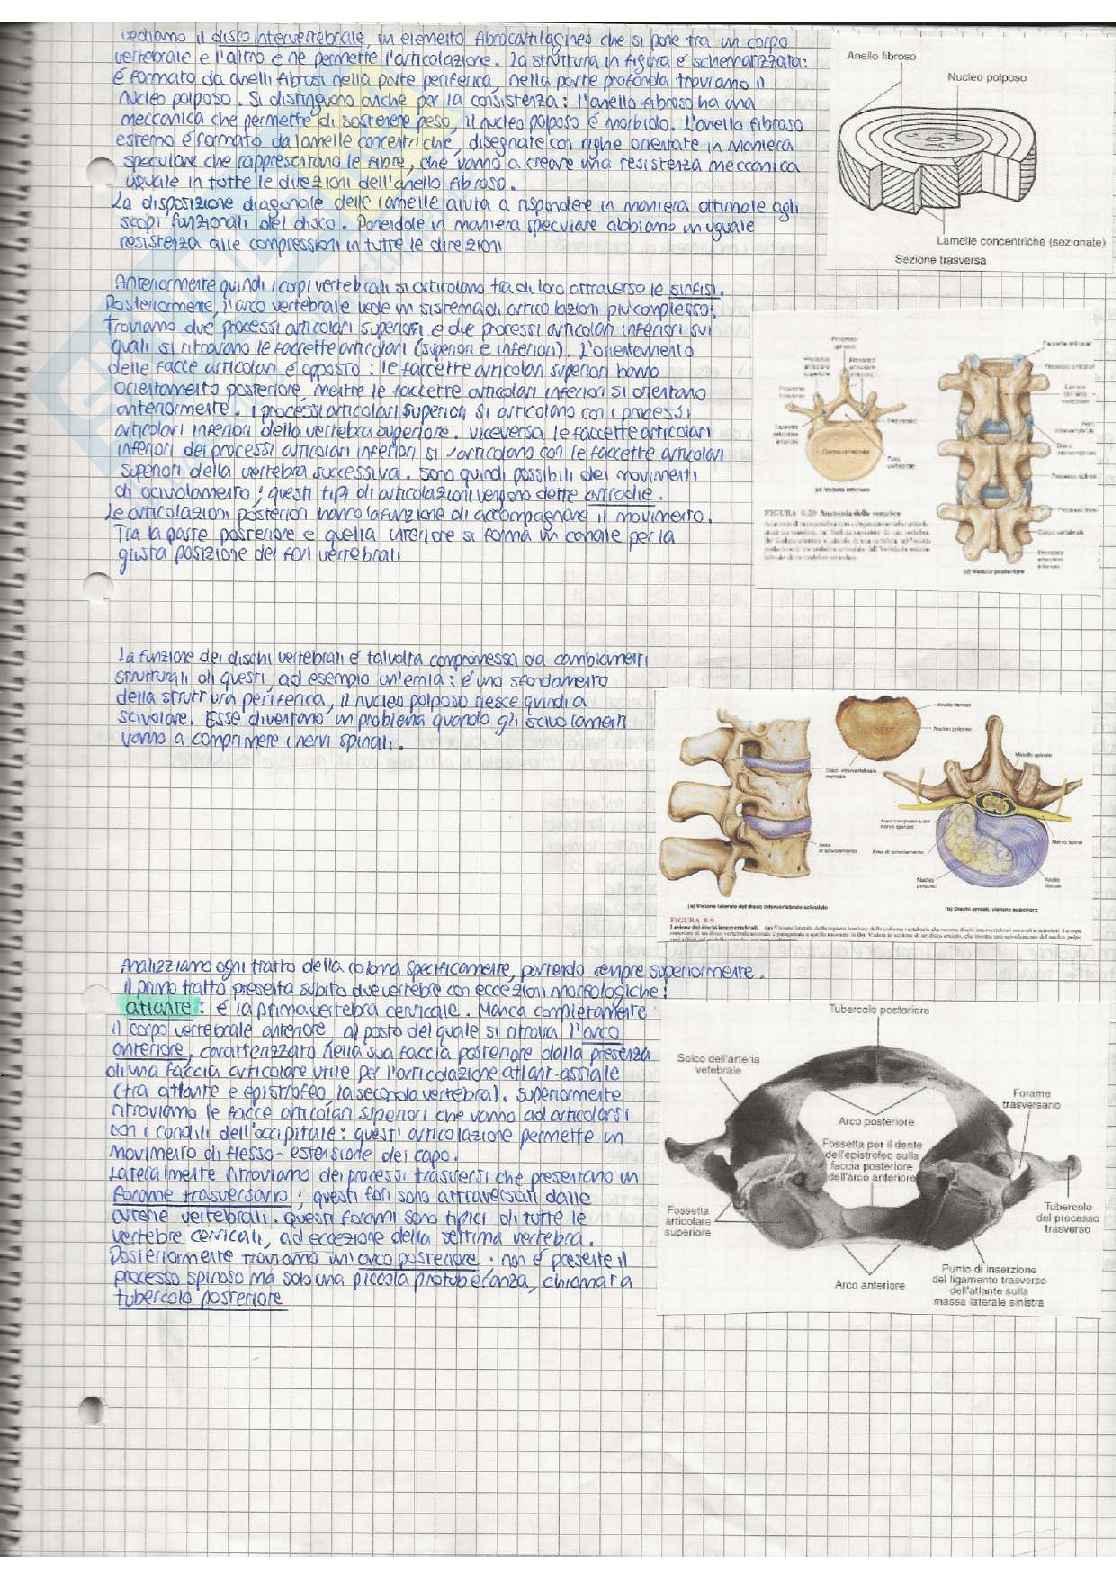 vediamo il disco intervertebrale, un elemento fibrocartilagineo che si pone tra un corpo
vertebrale e l'altro e ne permette l'articolazione. La struttura in figura è schematizzata:
è formato da anelli fibrosi nella parte periferica, nella parte profonda troviamo il
nucleo polposo. Si distinguono anche per la consistenza: l'anello fibroso ha una
meccanica che permette di sostenere peso, il nucleo polposo è morbido. L'anello fibroso
esterno è formato da lamelle concentriche, disegnate con righe orientate in maniera
speculare che rappresentano le fibre, che vanno a creare una resistenza meccanica
uguale in tutte le direzioni dell'anello fibroso.
La disposizione diagonale delle lamelle aiuta a rispondere in maniera ottimale agli
scopi funzionali del disco. Ponendole in maniera speculare abbiamo un uguale
resistenza alle compressioni in tutte le direzioni
Anello fibroso
Nucleo polposo
Lamelle concentriche (sezionate)
Sezione trasversa
Anteriormente quindi i corpi vertebrali si articolano tra di loro attraverso le sinfisi.
Posteriormente, l'arco vertebrale vede un sistema di articolazioni più complesso:
troviamo due processi articolari superiori e due processi articolari inferiori sui
quali si ritrovano le faccette articolari (superiori e inferiori). L'orientamento
delle facce articolari è opposto: le faccette articolari superiori hanno
orientamento posteriore, mentre le faccette articolari inferiori si orientano
anteriormente. I processi articolari superiori si articolano con i processi
articolari inferiori della vertebra superiore. viceversa le faccette articolari
inferiori dei processi articolari inferiori si articolano con le faccette articolari
superiori della vertebra successiva. Sono quindi possibili dei movimenti
di scivolamento; questi tipi di articolazioni vengono dette artrodie.
Le articolazioni posteriori hanno la funzione di accompagnare il movimento.
Tra la parte posteriore e quella inferiore si forma un canale per la
giusta posizione dei fori vertebrali
FIGURA 6.20 Anatomia delle vertebre
La funzione dei dischi vertebrali è talvolta compromessa da cambiamenti
strutturali di questi, ad esempio un'ernia: è uno sfondamento
della struttura periferica, il nucleo polposo riesce quindi a
scivolare. Esse diventano un problema quando gli scivolamenti
vanno a comprimere i nervi spinali.
(a) Visione laterale del disco intervertebrale scivolato
(b) Disco erniato, visione superiore
Analizziamo ogni tratto della colonna specificamente, partendo sempre superiormente.
Il primo tratto presenta subito due vertebre con eccezioni morfologiche:
atlante: è la prima vertebra cervicale. Manca completamente
il corpo vertebrale anteriore, al posto del quale si ritrova l'arco
anteriore, caratterizzato nella sua faccia posteriore dalla presenza
di una faccia articolare utile per l'articolazione atlant-assiale
(tra atlante e epistrofeo, la seconda vertebra). Superiormente
ritroviamo le facce articolari superiori che vanno ad articolarsi
con i condili dell'occipitale: quest'articolazione permette un
movimento di flesso-estensione del capo.
Lateralmente ritroviamo dei processi trasversi che presentano un
forame trasversario; questi fori sono attraversati dalle
arterie vertebrali. Questi forami sono tipici di tutte le
vertebre cervicali, ad eccezione della settima vertebra.
Posteriormente troviamo un arco posteriore; non è presente il
processo spinoso ma solo una piccola protuberanza, chiamata
tubercolo posteriore
Tubercolo posteriore
Solco dell'arteria
vetebrale
Forame
trasversario
Arco posteriore
Fossetta per il dente
dell'epistrofeo sulla
faccia posteriore
dell'arco anteriore
Fossetta
articolare
superiore
Tubercolo
del processo
trasverso
Arco anteriore
Punto di inserzione
del ligamento trasverso
dell'atlante sulla
massa laterale sinistra